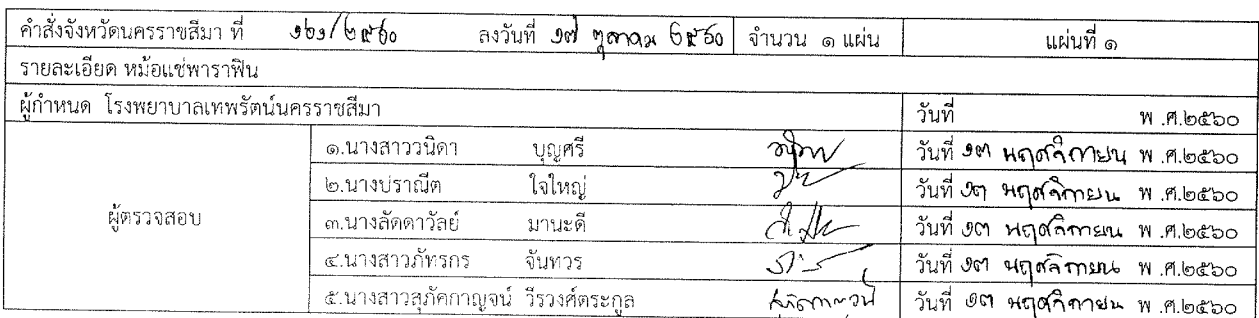 คำสั่งจังหวัดนครราชสีมา ที่ ๑๖๑/๒๕๖๐ ลงวันที่ ๑๗ ตุลาคม ๒๕๖๐ จำนวน ๑ แผ่น แผ่นที่ ๑
รายละเอียด หม้อแช่พาราฟิน
ผู้กำหนด โรงพยาบาลเทพรัตน์นครราชสีมา วันที่ พ.ศ.๒๕๖๐
ผู้ตรวจสอบ
๑.นางสาววนิดา บุญศรี วันที่ ๑๓ พฤศจิกายน พ.ศ.๒๕๖๐
๒.นางปราณีต ใจใหญ่ วันที่ ๑๓ พฤศจิกายน พ.ศ.๒๕๖๐
๓.นางลัดดาวัลย์ มานะดี วันที่ ๑๓ พฤศจิกายน พ.ศ.๒๕๖๐
๔.นางสาวภัทรกร จันทวร วันที่ ๑๓ พฤศจิกายน พ.ศ.๒๕๖๐
๕.นางสาวสุภัคกาญจน์ วีรวงศ์ตระกูล วันที่ ๑๓ พฤศจิกายน พ.ศ.๒๕๖๐